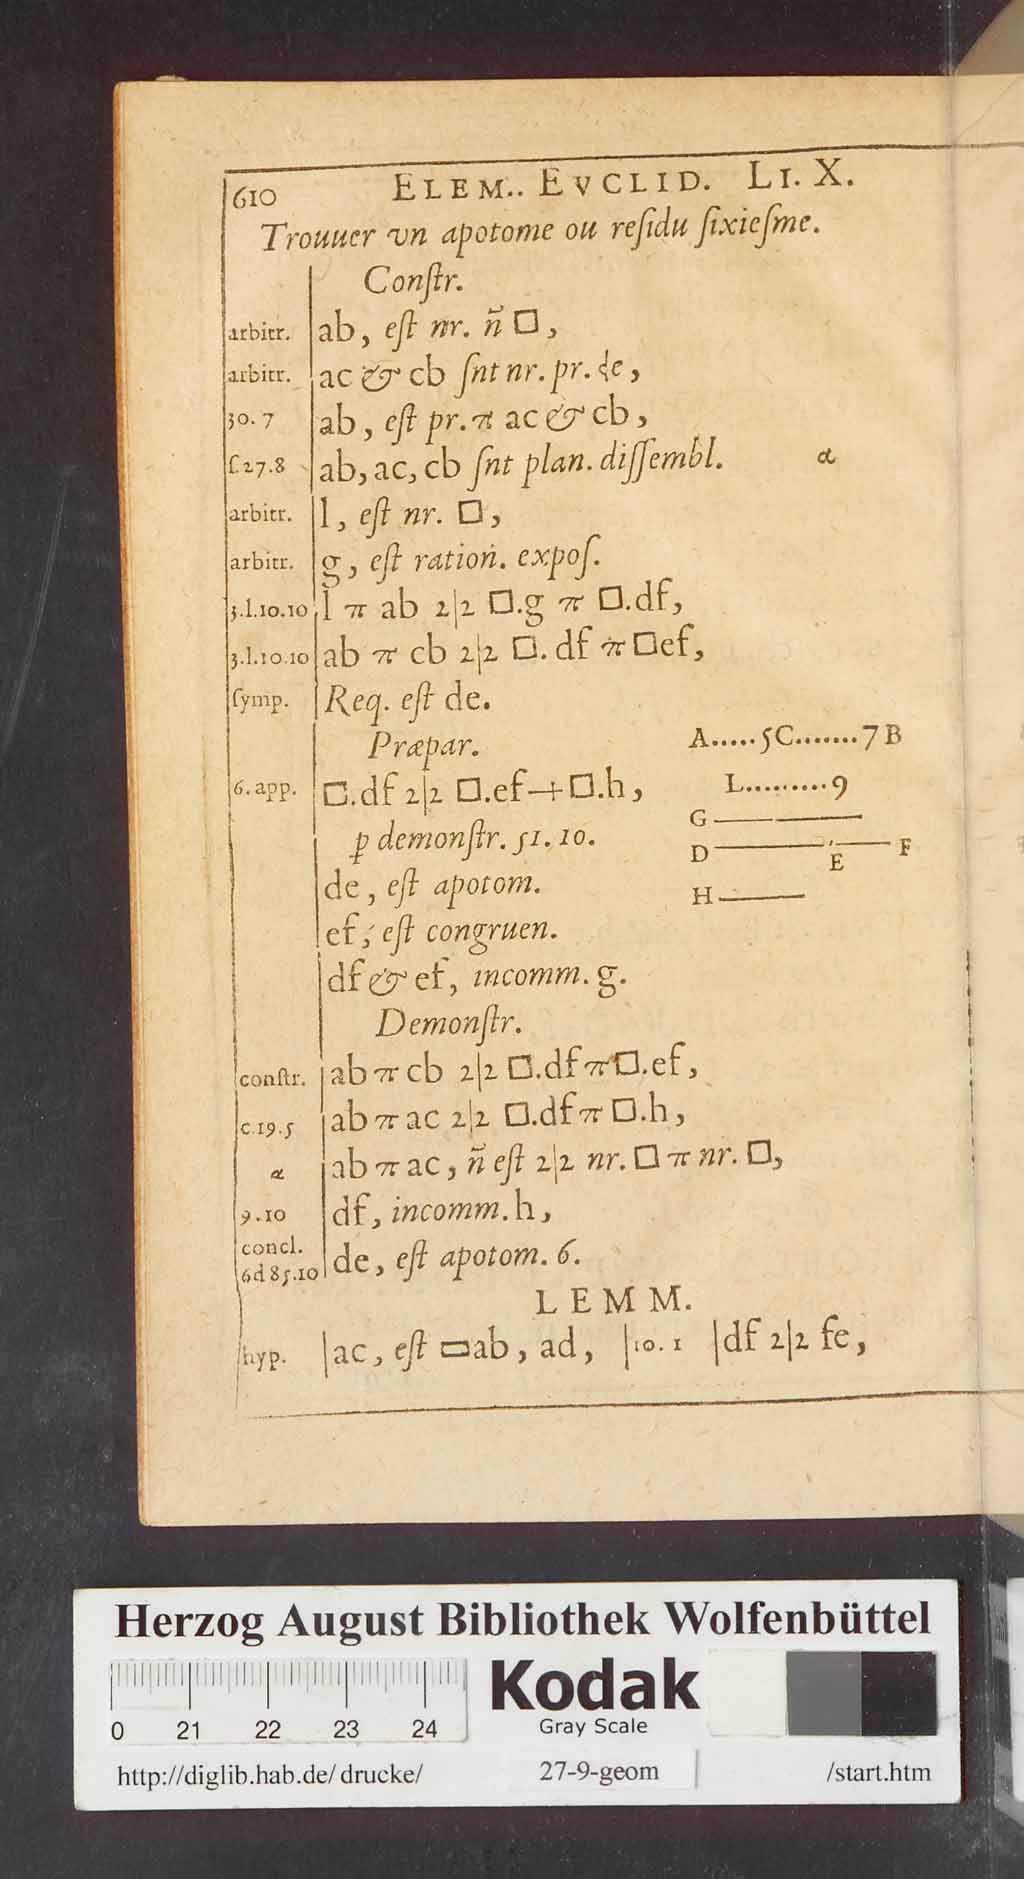 610 ELEM.. EVCLID. LI. X.
Trouuer vn apotome ou reſidu ſixieſme.
Conſtr.
arbitr. ab, eſt nr. n̄ □,
arbitr. ac & cb ſnt nr. pr. ſe,
30. 7 ab, eſt pr. π ac & cb,
ſ.27.8 ab, ac, cb ſnt plan. diſſembl. α
arbitr. l, eſt nr. □,
arbitr. g, eſt ration. expoſ.
3.l.10.10 l π ab 2|2 □.g π □.df,
3.l.10.10 ab π cb 2|2 □. df π □ef,
ſymp. Req. eſt de.
Præpar.
A.....5C.......7B
6. app. □.df 2|2 □.ef + □.h,
L.........9
G
ꝑ demonſtr. 51. 10.
D E F
de, eſt apotom.
H
ef, eſt congruen.
df & ef, incomm. g.
Demonſtr.
conſtr. ab π cb 2|2 □.df π □.ef,
c.19.5 ab π ac 2|2 □.df π □.h,
α ab π ac, n̄ eſt 2|2 nr. □ π nr. □,
9.10 df, incomm. h,
concl.
6d85.10 de, eſt apotom. 6.
LEMM.
hyp. |ac, eſt ▭ab, ad, |10. 1 |df 2|2 fe,
Herzog August Bibliothek Wolfenbüttel
0 21 22 23 24
Kodak
Gray Scale
http://diglib.hab.de/drucke/ 27-9-geom /start.htm